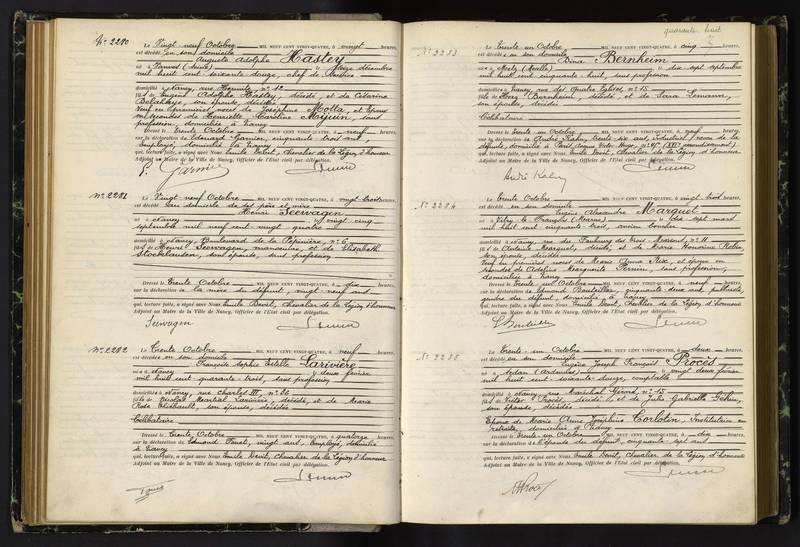 N° 2280
Le Vingt neuf Octobre MIL NEUF CENT VINGT-QUATRE, à vingt heures,
est décédé en son domicile
Auguste Adolphe Hastey
né à Vanves (Seine) le seize décembre
mil huit cent soixante douze, chef de
domicilié à Nancy, rue n° 10
fils de Eugène Adolphe Hastey, décédé et de Catherine
Delahaye, son épouse, décédée
Veuf en premières noces de Joséphine Motta, et Epoux
en secondes de Henriette Caroline Mijuin, sans
profession, domiciliée à Nancy
Dressé le trente Octobre MIL NEUF CENT VINGT-QUATRE, à neuf heures,
sur la déclaration de Edouard Garnier, cinquante trois ans
employé, domicilié à Nancy
qui, lecture faite, a signé avec Nous, Emile Devit, Chevalier de la Légion d'honneur
Adjoint au Maire de la Ville de Nancy, Officier de l'Etat civil par délégation.
Garnier
N° 2281
Le Vingt neuf Octobre MIL NEUF CENT VINGT-QUATRE, à vingt trois heures,
est décédé au domicile de ses père et mère
Henri Seerwagen
né à Nancy le vingt cinq
septembre mil neuf cent vingt quatre
domicilié à Nancy, Boulevard de la Pépinière, n° 6
fils de Henri Seerwagen, manoeuvre, et de Elisabeth
Stockhausen, son épouse, sans profession
Dressé le trente Octobre MIL NEUF CENT VINGT-QUATRE, à dix heures,
sur la déclaration de la mère du défunt, vingt neuf ans
qui, lecture faite, a signé avec Nous, Emile Devit, Chevalier de la Légion d'honneur
Adjoint au Maire de la Ville de Nancy, Officier de l'Etat civil par délégation.
Seerwagen
N° 2282
Le Trente Octobre MIL NEUF CENT VINGT-QUATRE, à neuf heures,
est décédée en son domicile
Françoise Sophie Estelle Larivière
née à Nancy le deux février
mil huit cent quarante trois, sans profession
domiciliée à Nancy, rue Charles III, n° 86
fille de Nicolas Martial Larivière, décédé, et de Marie
Rose Thiébault, son épouse, décédée
Célibataire
Dressé le Trente Octobre MIL NEUF CENT VINGT-QUATRE, à quatorze heures,
sur la déclaration de Edmond vingt ans, Employé, domicilié
à Nancy
qui, lecture faite, a signé avec Nous, Emile Devit, Chevalier de la Légion d'honneur
Adjoint au Maire de la Ville de Nancy, Officier de l'Etat civil par délégation.
quarante huit
N° 2283
Le trente un Octobre MIL NEUF CENT VINGT-QUATRE, à cinq heures,
est décédée en son domicile
Dina Bernheim
née à Metz (Moselle) le dix sept septembre
mil huit cent cinquante huit, sans profession
domiciliée à Nancy, rue des Quatre Eglises, n° 15
fille de Bernheim, décédé, et de Sara Lemann,
son épouse, décédée
Célibataire
Dressé le trente un Octobre MIL NEUF CENT VINGT-QUATRE, à neuf heures,
sur la déclaration de André Kahn, trente six ans, industriel, neveu de la
défunte, domicilié à Paris, Avenue Victor Hugo, (XVI arrondissement)
qui, lecture faite, a signé avec Nous, Emile Devit, Chevalier de la Légion d'honneur
Adjoint au Maire de la Ville de Nancy, Officier de l'Etat civil par délégation.
André Kahn
N° 2284
Le trente Octobre MIL NEUF CENT VINGT-QUATRE, à vingt trois heures,
est décédé en son domicile
Eugène Alexandre Marquet
né à Vitry le François (Marne) le dix sept mars
mil huit cent cinquante trois, ancien
domicilié à Nancy, rue du Faubourg des Trois Maisons, n° 11
fils de Marquet, décédé, et de Marie Honorine
son épouse, décédée
Veuf en premières noces de Marie Anna Rix, et époux en
secondes de Adeline Marguerite sans profession,
domiciliée à Nancy
Dressé le trente un Octobre MIL NEUF CENT VINGT-QUATRE, à neuf heures,
sur la déclaration de Edmond cinquante deux ans,
gendre du défunt, domicilié à Nancy
qui, lecture faite, a signé avec Nous, Emile Devit, Chevalier de la Légion d'honneur
Adjoint au Maire de la Ville de Nancy, Officier de l'Etat civil par délégation.
N° 2285
Le trente un Octobre MIL NEUF CENT VINGT-QUATRE, à deux heures,
est décédé en son domicile
Eugène Joseph François Procès
né à Sedan (Ardennes) le vingt deux février
mil huit cent soixante douze, comptable
domicilié à Nancy, rue Maréchal Gérard, n° 15
fils de Victor Procès, décédé, et de Julie Gabrielle
son épouse, décédée
Epoux de Marie Anne Joséphine Corlotin, Institutrice en
retraite, domiciliée à Nancy
Dressé le trente un Octobre MIL NEUF CENT VINGT-QUATRE, à dix heures,
sur la déclaration de l'épouse du défunt, cinquante sept ans
qui, lecture faite, a signé avec Nous, Emile Devit, Chevalier de la Légion d'honneur
Adjoint au Maire de la Ville de Nancy, Officier de l'Etat civil par délégation.